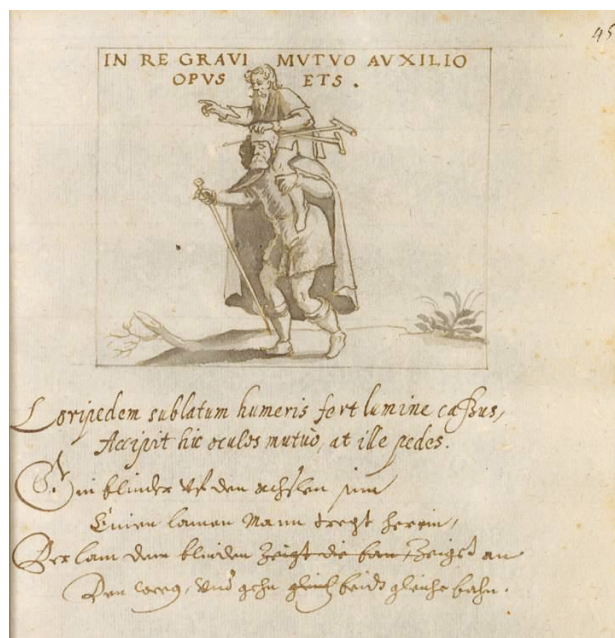 45
IN RE GRAVI MVTVO AVXILIO
OPVS ETS.
Loripedem sublatum humeris fert lumine cassus,
Accipit hic oculos mutuo, at ille pedes.
Ein blinder vf den achslen sein
Einen lamen Mann tregt herein,
Der lam dem blinden zeigt die ban zeigt an
Den weeg, und gehn gleich beide gleiche bahn.